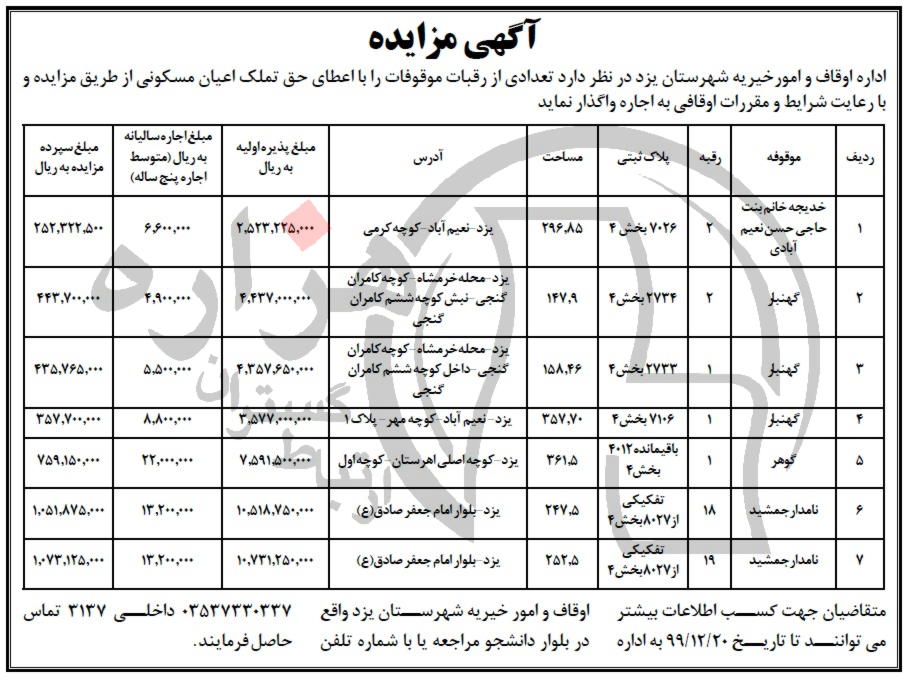 آگهی مزایده
اداره اوقاف و امورخیریه شهرستان یزد در نظر دارد تعدادی از رقبات موقوفات را با اعطای حق تملک اعیان مسکونی از طریق مزایده و
با رعایت شرایط و مقررات اوقافی به اجاره واگذار نماید
ردیف موقوفه رقبه پلاک ثبتی مساحت آدرس مبلغ پذیره اولیه به ریال مبلغ اجاره سالیانه به ریال (متوسط اجاره پنج ساله) مبلغ سپرده مزایده به ریال
۱ خدیجه خانم بنت حاجی حسن نعیم آبادی ۲ ۷۰۲۶ بخش ۴ ۲۹۶,۸۵ یزد-نعیم آباد-کوچه کرمی ۲,۵۲۳,۲۲۵,۰۰۰ ۶,۶۰۰,۰۰۰ ۲۵۲,۳۲۲,۵۰۰
۲ گهنبار ۲ ۲۷۳۴ بخش۴ ۱۴۷,۹ یزد-محله خرمشاه-کوچه کامران گنجی-نبش کوچه ششم کامران گنجی ۴,۴۳۷,۰۰۰,۰۰۰ ۴,۹۰۰,۰۰۰ ۴۴۳,۷۰۰,۰۰۰
۳ گهنبار ۱ ۲۷۳۳ بخش۴ ۱۵۸,۴۶ یزد-محله خرمشاه-کوچه کامران گنجی-داخل کوچه ششم کامران گنجی ۴,۳۵۷,۶۵۰,۰۰۰ ۵,۵۰۰,۰۰۰ ۴۳۵,۷۶۵,۰۰۰
۴ گهنبار ۱ ۷۱۰۶ بخش۴ ۳۵۷,۷۰ یزد-نعیم آباد-کوچه مهر-پلاک۱ ۳,۵۷۷,۰۰۰,۰۰۰ ۸,۸۰۰,۰۰۰ ۳۵۷,۷۰۰,۰۰۰
۵ گوهر ۱ باقیمانده ۴۰۱۲ بخش۴ ۳۶۱,۵ یزد-کوچه اصلی اهرستان-کوچه اول ۷,۵۹۱,۵۰۰,۰۰۰ ۲۲,۰۰۰,۰۰۰ ۷۵۹,۱۵۰,۰۰۰
۶ نامدار جمشید ۱۸ تفکیکی از۸۰۲۷بخش۴ ۲۴۷,۵ یزد-بلوار امام جعفر صادق(ع) ۱۰,۵۱۸,۷۵۰,۰۰۰ ۱۳,۲۰۰,۰۰۰ ۱,۰۵۱,۸۷۵,۰۰۰
۷ نامدار جمشید ۱۹ تفکیکی از۸۰۲۷بخش۴ ۲۵۲,۵ یزد-بلوار امام جعفر صادق(ع) ۱۰,۷۳۱,۲۵۰,۰۰۰ ۱۳,۲۰۰,۰۰۰ ۱,۰۷۳,۱۲۵,۰۰۰
متقاضیان جهت کسب اطلاعات بیشتر
می توانند تا تاریخ ۹۹/۱۲/۲۰ به اداره
اوقاف و امور خیریه شهرستان یزد واقع
در بلوار دانشجو مراجعه یا با شماره تلفن
۰۳۵۳۷۳۳۰۳۳۷ داخلی ۳۱۳۷ تماس
حاصل فرمایند.
هزاره
گستران
ارتباط